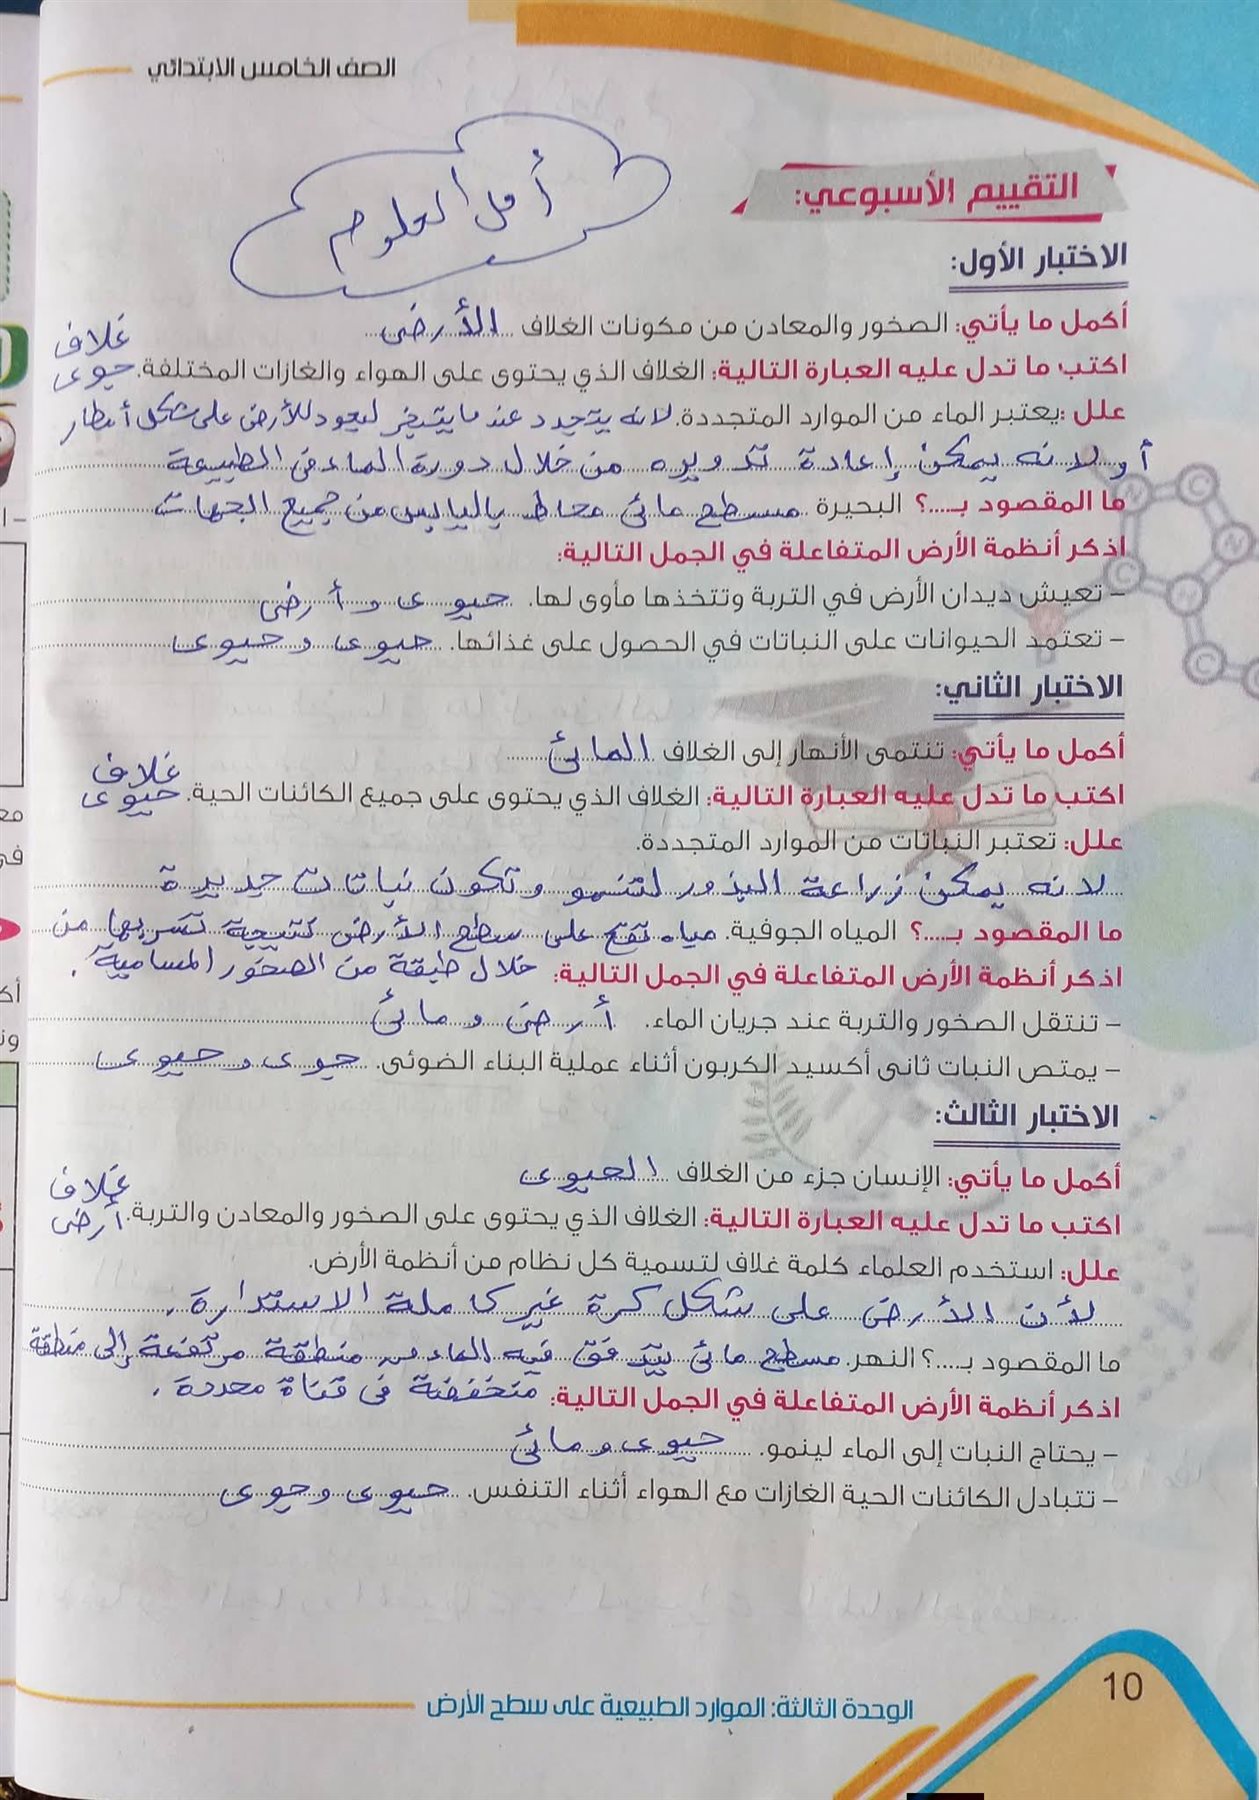 الصف الخامس الابتدائي
أمل العلوم
التقييم الأسبوعي:
الاختبار الأول:
أكمل ما يأتي: الصخور والمعادن من مكونات الغلاف الأرضى
اكتب ما تدل عليه العبارة التالية: الغلاف الذي يحتوى على الهواء والغازات المختلفة. غلاف جوى
علل :يعتبر الماء من الموارد المتجددة. لانه يتجدد عند ما يتبخر ليعود للأرض على شكل أمطار
أو لانه يمكن إعادة تدويره من خلال دورة الماء فى الطبيعة
ما المقصود بـ....؟ البحيرة مسطح مائى محاط باليابس من جميع الجهات
اذكر أنظمة الأرض المتفاعلة في الجمل التالية:
- تعيش ديدان الأرض في التربة وتتخذها مأوى لها. حيوى وأرضى
- تعتمد الحيوانات على النباتات في الحصول على غذائها. حيوى وحيوى
الاختبار الثاني:
أكمل ما يأتي: تنتمى الأنهار إلى الغلاف المائى
اكتب ما تدل عليه العبارة التالية: الغلاف الذي يحتوى على جميع الكائنات الحية. غلاف حيوى
علل: تعتبر النباتات من الموارد المتجددة.
لانه يمكن زراعة البذور لتنمو وتكون نباتات جديدة
ما المقصود بـ....؟ المياه الجوفية. مياه تقع على سطح الأرض نتيجة تسربها من
خلال طبقة من الصخور المسامية.
اذكر أنظمة الأرض المتفاعلة في الجمل التالية:
- تنتقل الصخور والتربة عند جريان الماء. أرضى ومائى
- يمتص النبات ثانى أكسيد الكربون أثناء عملية البناء الضوئى. جوى وحيوى
الاختبار الثالث:
أكمل ما يأتي: الإنسان جزء من الغلاف الحيوى
اكتب ما تدل عليه العبارة التالية: الغلاف الذي يحتوى على الصخور والمعادن والتربة. غلاف أرضى
علل: استخدم العلماء كلمة غلاف لتسمية كل نظام من أنظمة الأرض.
لأن الأرض على شكل كرة غير كاملة الاستدارة.
ما المقصود بـ....؟ النهر. مسطح مائى يتدفق فيه الماء من منطقة مرتفعة إلى منطقة
منخفضة فى قناة محددة.
اذكر أنظمة الأرض المتفاعلة في الجمل التالية:
- يحتاج النبات إلى الماء لينمو. حيوى ومائى
- تتبادل الكائنات الحية الغازات مع الهواء أثناء التنفس. حيوى وجوى
الوحدة الثالثة: الموارد الطبيعية على سطح الأرض
10